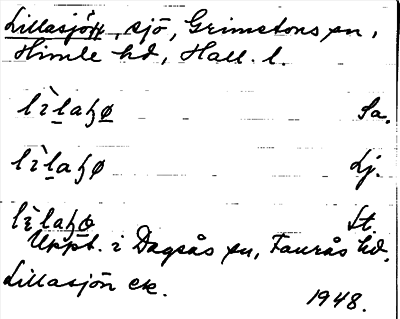 Lillasjön, sjö, Grimetons sn,
Himle hd, Hall. l.
lìlaɧø Sa.
lìlaɧø Lj.
lìlaɧø St.
Uppt. i Dagsås sn, Faurås hd.
Lillasjön ek.
1948.